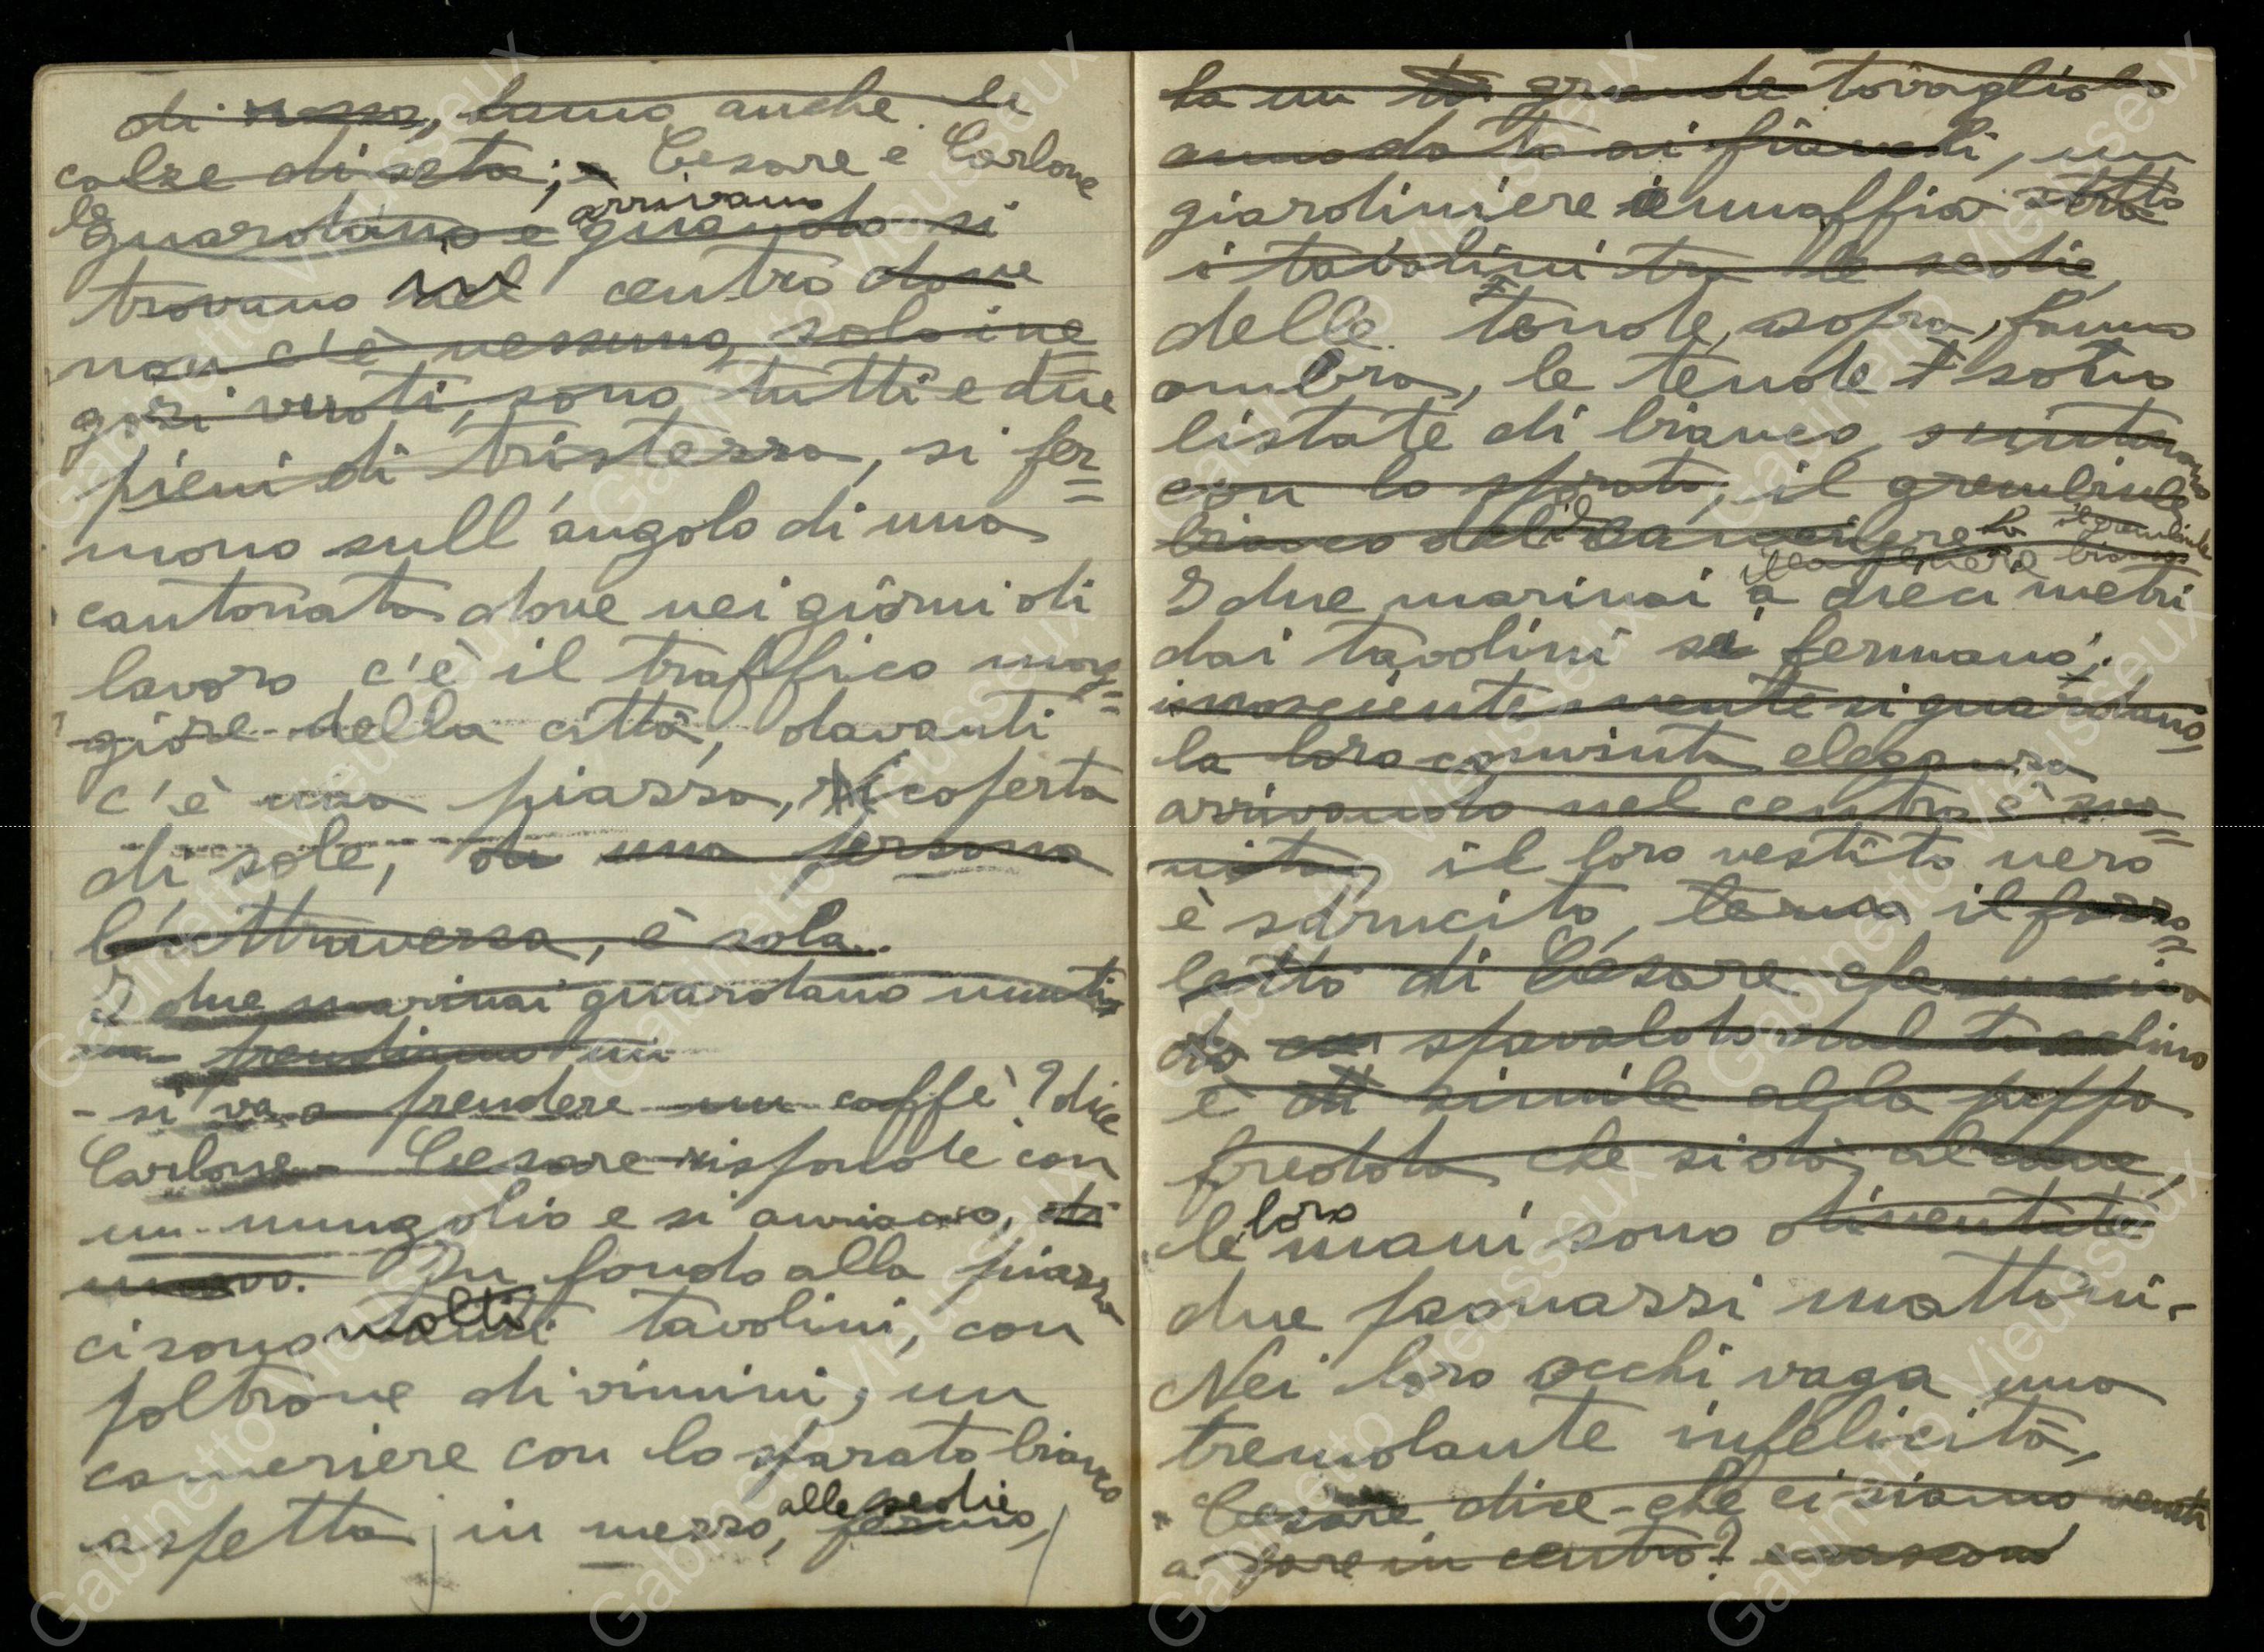 di rosso, hanno anche le
calze di seta; e Cesare e Carlone
le guardano e quando si
arrivano
trovano nel centro dove
non c'è nessuno, solo i ne=
gozi vuoti, sono tutti e due
pieni di tristezza, si fer=
mono sull'angolo di una
cantonata dove nei giorni di
lavoro c'è il traffico mag=
giore della città, davanti
c'è una piazza, ricoperta
di sole, una persona
l'attraversa, è sola.
I due marinai guardano muti
prendiamo un
- si va a prendere un caffè? dice
Carlone - Cesare risponde con
un mugolio e si avviano,
In fondo alla piazza
ci sono molti tavolini, con
poltrone di vimini, un
cameriere con lo sparato bianco
aspetta in mezzo, alle sedie fermo,
ha un grande tovagliolo
annodato ai fianchi, un
giardiniere innaffia sotto
i tavolini tra le sedie,
delle tende, sopra, fanno
ombra, le tende sono
listate di bianco,
con lo sparato, il grembiule
bianco del il cameriere ha il grembiule
il cameriere bianco
I due marinai a dieci metri
dai tavolini si fermano;
inoscientemente si guardano,
la loro convinta eleganza
arrivando nel centro è sva=
nita, il loro vestito nero
è sdrucito, il fazzo=
letto di Cesare che
spavaldo dal taschino
è simile alla pezza
fredda che si dà al cane,
le loro mani sono diventate
due paonazzi mattoni.
Nei loro occhi vaga una
tremolante infelicità,
Cesare dice - che ci siamo venuti
a fare in centro?